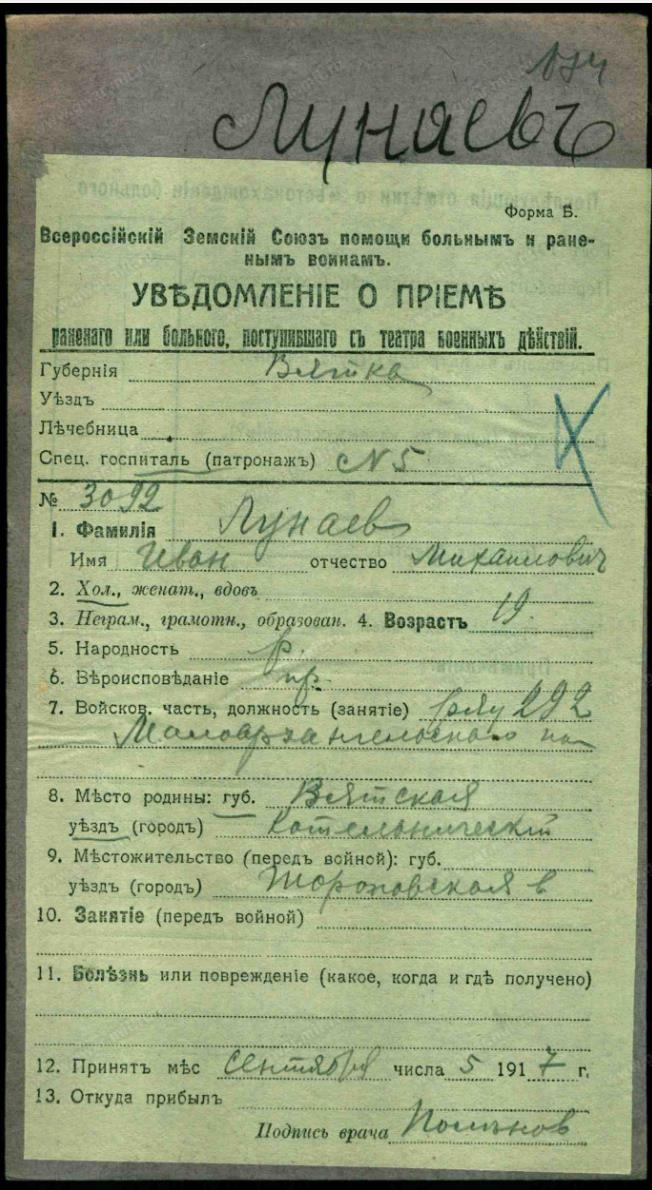 Лунаевъ
Форма Б.
Всероссійскій Земскій Союзъ помощи больнымъ и ране-
нымъ воинамъ.
УВѢДОМЛЕНІЕ О ПРІЕМѢ
раненаго или больного, поступившаго съ театра военныхъ дѣйствій.
Губернія Вятка
Уѣздъ
Лѣчебница
Спец. госпиталь (патронажъ) N 5
№ 3092
1. Фамилія Лунаев
Имя Иван отчество Михаилович
2. Хол., женат., вдовъ
3. Неграм., грамотн., образован. 4. Возрастъ 19
5. Народность р.
6. Вѣроисповѣданіе пр.
7. Войсков. часть, должность (занятіе) ряд 292
Малоархангельского по
8. Мѣсто родины: губ. Вятская
уѣздъ (городъ) Котельнический
9. Мѣстожительство (передъ войной): губ.
уѣздъ (городъ) Тороповская в
10. Занятіе (передъ войной)
11. Болѣзнь или поврежденіе (какое, когда и гдѣ получено)
12. Принятъ мѣс Сентября числа 5 1917 г.
13. Откуда прибылъ
Подпись врача